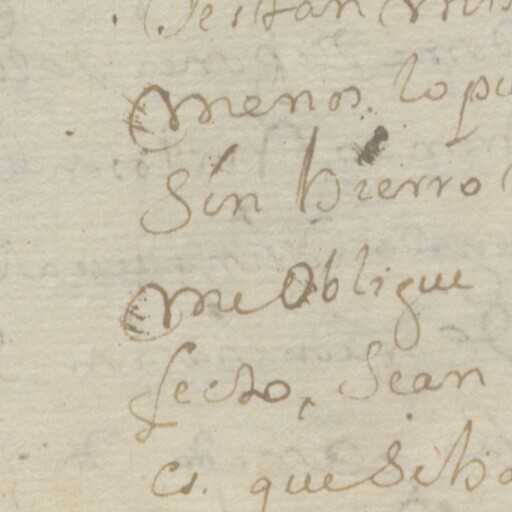 menos. lo pu
Sin hierro
me Obligue
fecto, Sean
cs. que Siha